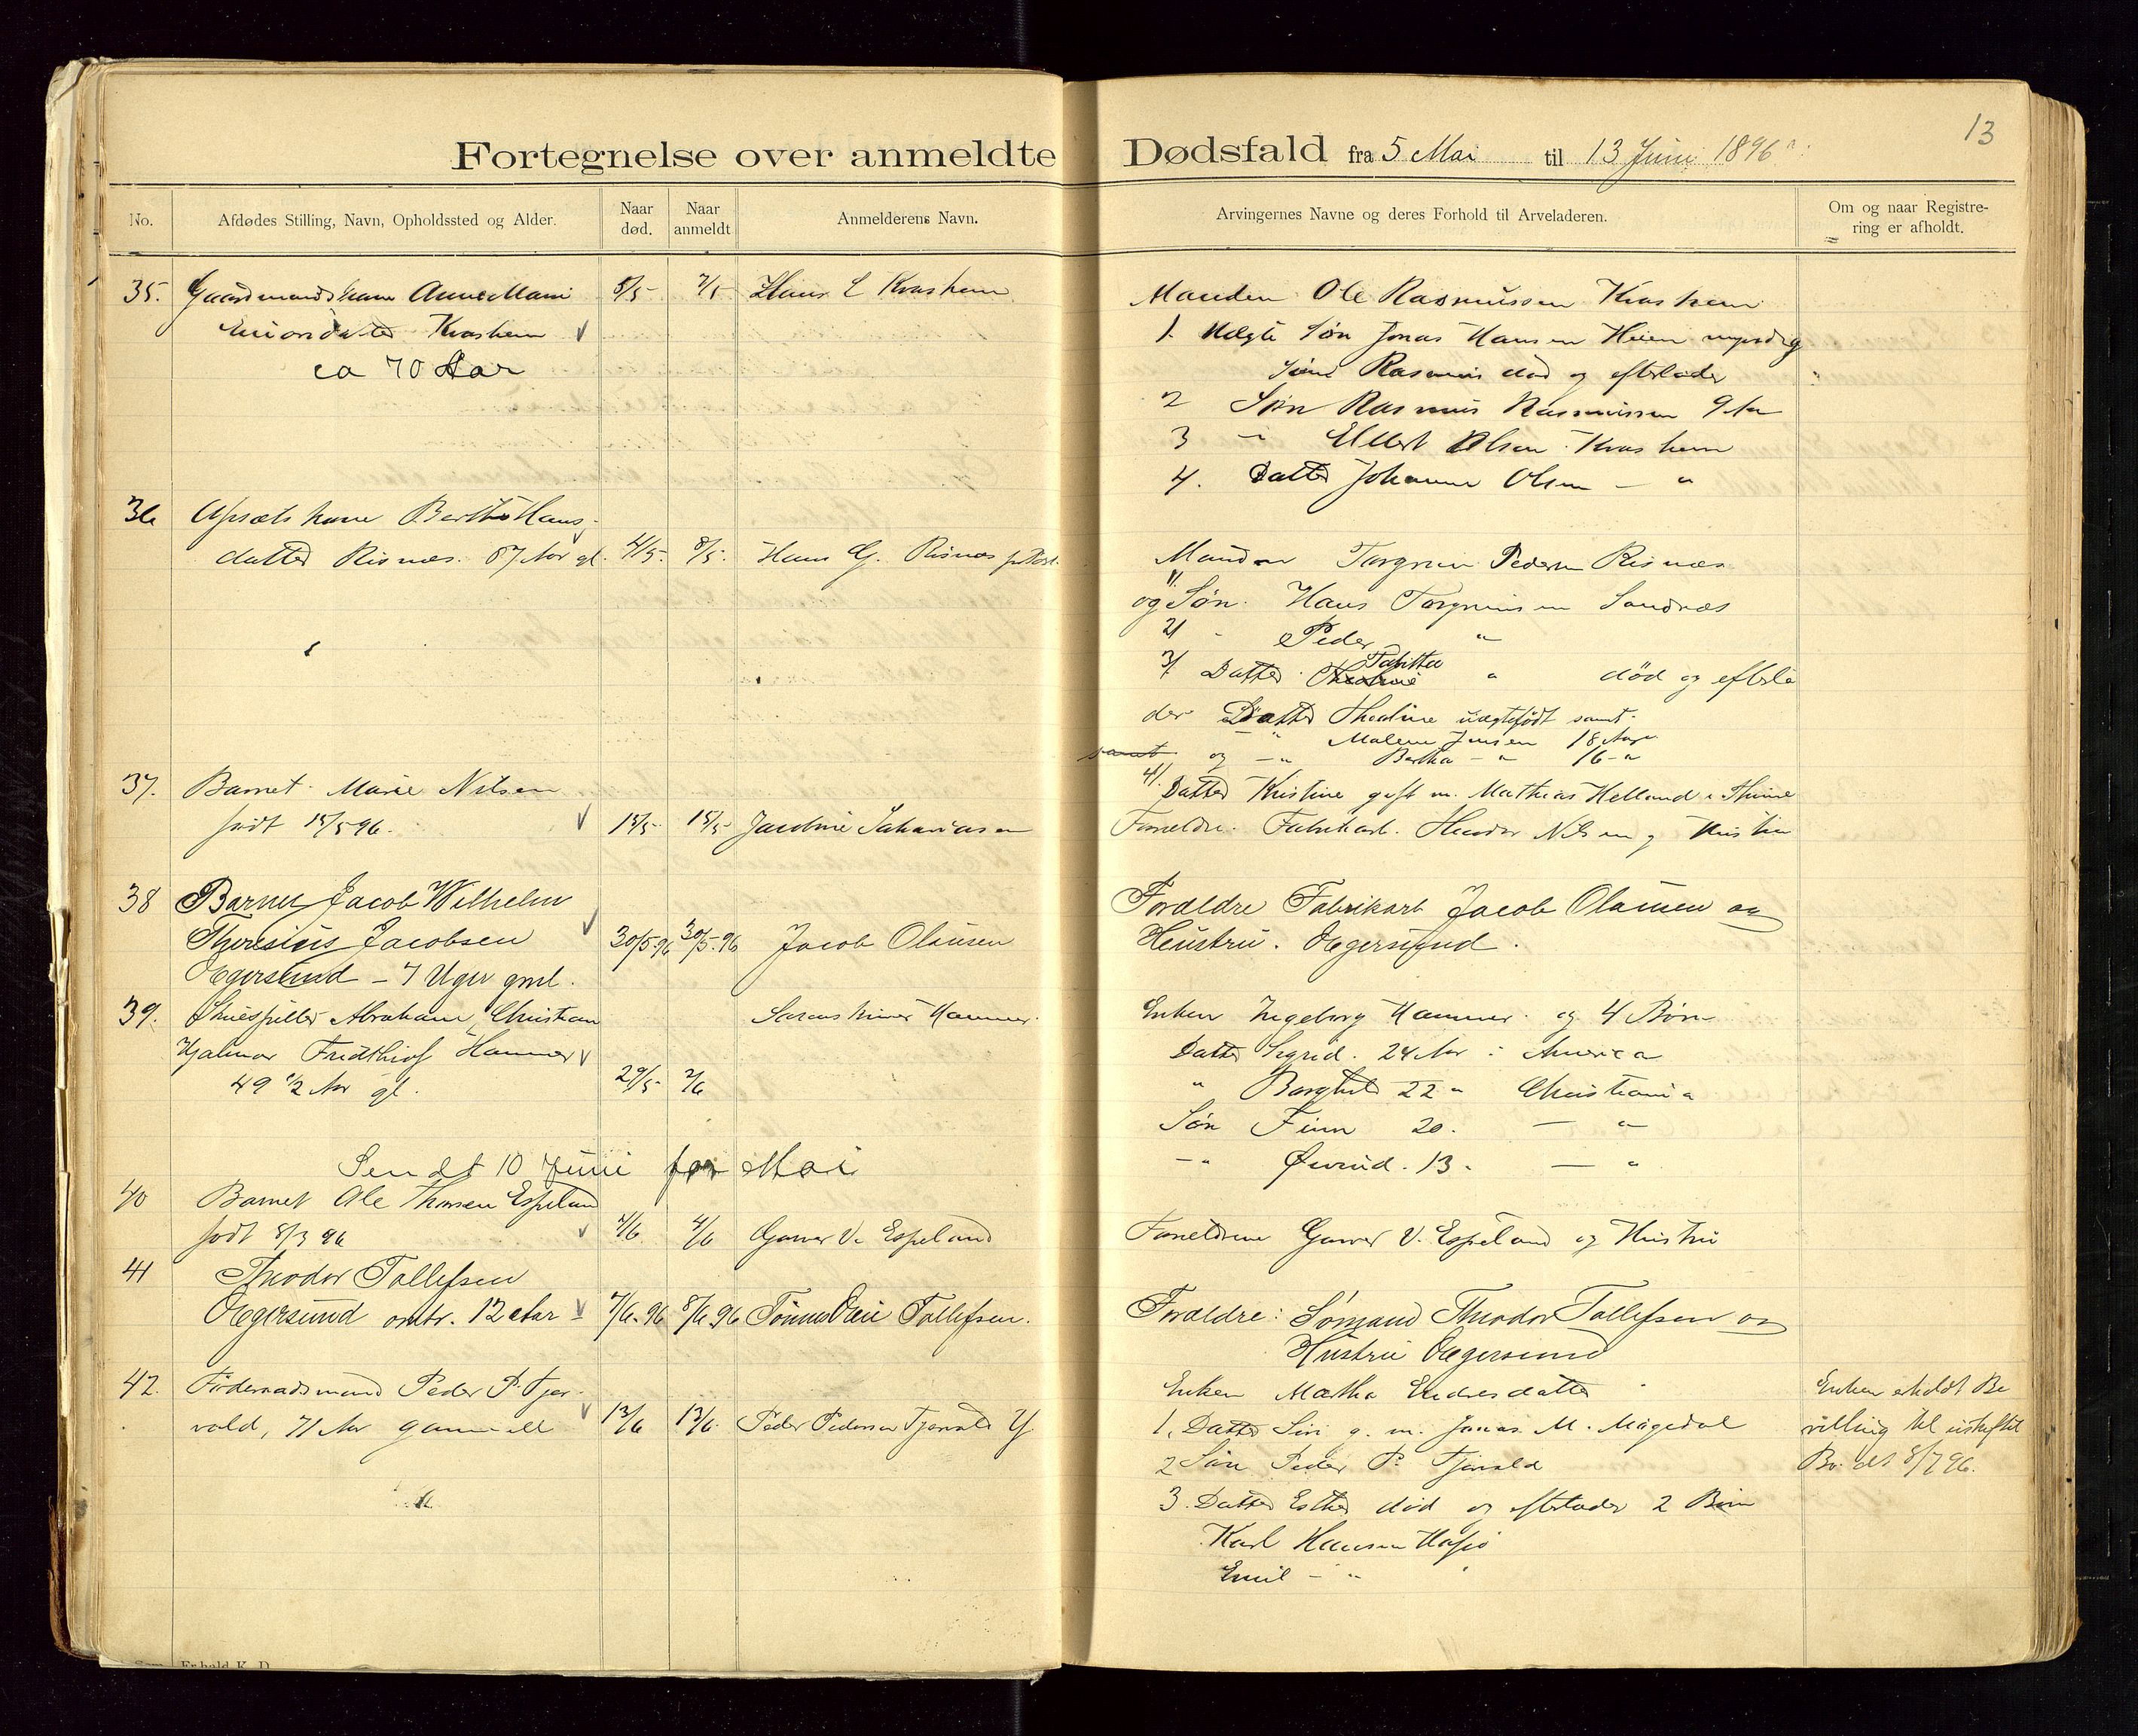 13
Fortegnelse over anmeldte Dødsfald fra 5 Mai til 13 Juni 1896
No.
Afdødes Stilling, Navn, Opholdssted og Alder.
Naar død.
Naar anmeldt
Anmelderens Navn.
Arvingernes Navne og deres Forhold til Arveladeren.
Om og naar Registre-
ring er afholdt.
35. Gaardmandskone Anne Marie 5/5 7/5 Kvashem
Kvashem
ca 70 Aar
Manden Ole Rasmussen Kvashem
1. Uægte Søn Jonas Hansen Heien myndig
Søn Rasmus død og efterlader
2 Søn Rasmus Rasmussen 9 Aar
3 - " Ellert Olsen Kvashem
4. Datter Johanne Olsen - "
36 kone Berthe Hans-
datter Risnæs. 87 Aar gl. 4/5 8/5 Hans G. Risnæs
Manden Torgrim Pedersen Risnæs
og 1/ Søn Hans Torgrimsen Sandnæs
2/ - Peder "
3/ Datter Tabitta " død og efterla
der Datter Thealine uægtefødt samt
- " Malene Jensen 18 Aar
samt og - " Bertha - " 16 - "
4/. Datter Kristine gift m. Mathias Helland i Thime
37. Barnet Marie Nilsen
født 15/5 96. 15/5 18/5 Jacobine Sakariasen
Forældre. Fabrikarb. Theodor Nilsen og Hustru
38 Barnet Jacob Wilhelm
Theresius Jacobsen 30/5-96 30/5-96 Jacob Olausen
Egersund - 7 Uger gml.
Forældre Fabrikarb Jacob Olausen og
Heustru. Egersund.
39. Skuespiller Abraham Christian Hammer
Hjalmar Fridthiof Hammer
49 1/2 Aar gl. 29/5 2/6
Enken Ingeborg Hammer og 4 Børn
Datter Sigrid. 24 Aar i America
" Borghild 22 " Christiania
Søn Finn 20. - "
- " Øivind. 13 - - "
Sendt 10 Juni for Mai
40 Barnet Ole Thorsen Espeland
født 8/3 96 4/6 Espeland
Forældrene V. Espeland og Hustru
41 Theodor Tollefsen
Egersund omtr. 12 Aar 7/6-96 8/6-96 Tollefsen.
Forældre: Sømand Theodor Tollefsen og
Hustru Egersund
42. Føderaadsmand Peder P. Tjør-
vald, 71 Aar gammel 13/6 13/6 Peder Pedersen
Enken Martha Endresdatter
1. Datter Siri g. m. Jonas M. Møgedal
2 Søn Peder P.
3. Datter Esther død og efterlader 2 Børn
Karl Hansen
Emil - "
Enken erholdt Be
villing til uskiftet
Bo det 8/7 96.